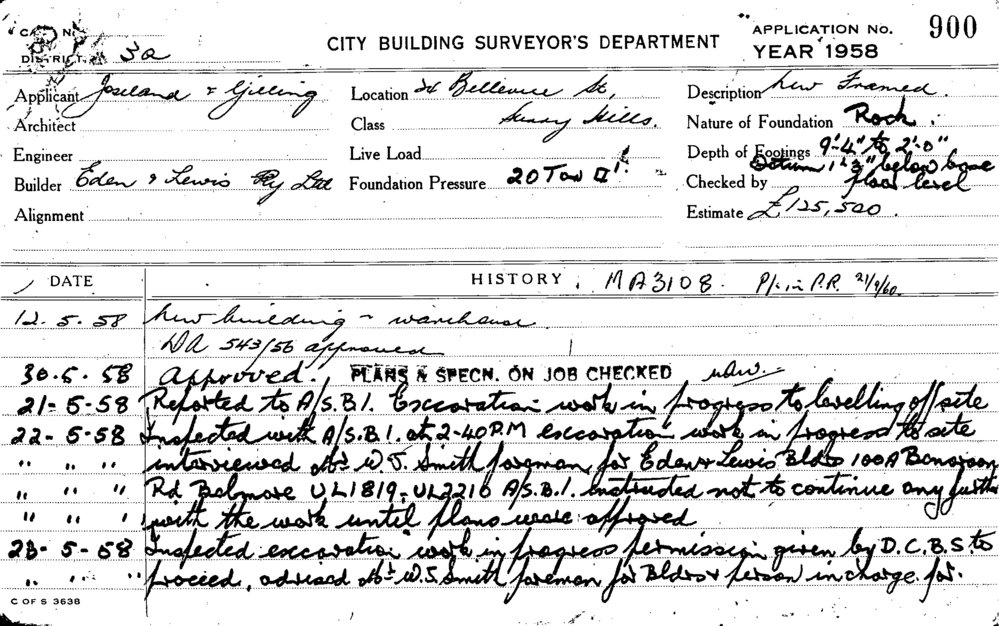 CITY BUILDING SURVEYOR'S DEPARTMENT
APPLICATION No. 900
YEAR 1958
DISTRICT 3a
Applicant Joseland & Gilling
Location Bellevue St,
Description New Framed
Architect
Class Surry Hills.
Nature of Foundation Rock.
Engineer
Live Load
Depth of Footings 9'-4" to 2'-0"
1'3" below base
Builder Eden & Lewis Pty Ltd
Foundation Pressure 20 Ton □'
Checked by floor level
Alignment
Estimate £125,500.
DATE HISTORY. MA3108. P/. in P.R. 21/9/60
12.5.58 New building - warehouse
DA 543/56 approved
30.5.58 Approved. PLANS & SPECN. ON JOB CHECKED
21-5-58 Reported to A/S.B.I. Exccavation work in progress to levelling off site
22-5-58 Inspected with A/S.B.I. at 2-40PM exccavation work in progress to site
" " " interviewed Mr W.J. Smith foreman for Eden & Lewis Bldrs 100A
" " " Rd Belmore UL1819-UL2210 A/S.B.I. instructed not to continue any further
" " " with the work until plans were approved
23-5-58 Inspected exccavation work in progress permission given by D.C.B.S. to
" " " proceed, advised Mr W.J. Smith foreman for Bldrs & person in charge for.
C OF S 3638